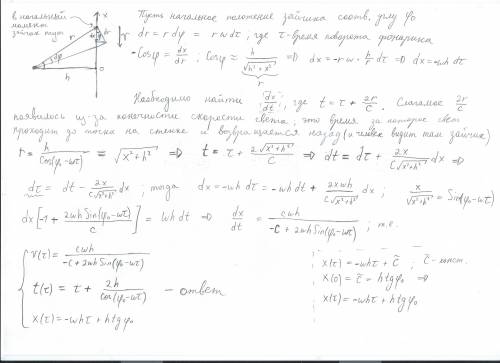 в начальный
момент
зайчик тут
x
r
dφ
h
0
dr
r
Пусть начальное положение зайчика соотв. углу φ₀
dr = r dφ = r w dτ, где τ-время поворота фонарика
-Cosφ = dx/dr ; Cosφ = h/√(h²+x²) ⇒ dx = -r w · h/r dτ ⇒ dx = -wh dτ
r
Необходимо найти dx/dt, где t = τ + 2r/c. Слагаемое 2r/c
появилось из-за конечности скорости света, это время за которое свет
проходит до пятна на стенке и возвращается назад (и человек видит там зайчик)
r = h/cos(φ₀-wτ) = √(x²+h²) ⇒ t = τ + 2√(x²+h²)/c ⇒ dt = dτ + 2x/(c√(x²+h²)) dx ⇒
dτ = dt - 2x/(c√(x²+h²)) dx ; тогда dx = -wh dτ = -wh dt + 2xwh/(c√(x²+h²)) dx ; x/√(x²+h²) = Sin(φ₀-wτ)
dx[-1 + 2wh Sin(φ₀-wτ)/c] = wh dt ⇒ dx/dt = cwh/(-c + 2wh Sin(φ₀-wτ)) ; т.е.
v(τ) = cwh/(-c + 2wh Sin(φ₀-wτ))
t(τ) = τ + 2h/cos(φ₀-wτ) - ответ
x(τ) = -whτ + h tg φ₀
x(τ) = -whτ + c̃ ; c̃-конст.
x(0) = c̃ = h tg φ₀ ⇒
x(τ) = -whτ + h tg φ₀